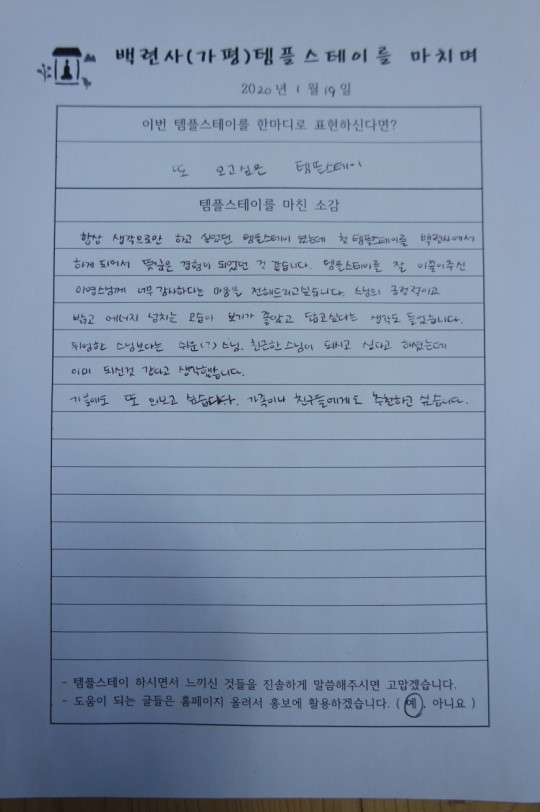 백련사(가평)템플스테이를 마치며
2020년 1월 19일
이번 템플스테이를 한마디로 표현하신다면?
또 오고싶은 템플스테이
템플스테이를 마친 소감
항상 생각으로만 하고 싶었던 템플스테이 였는데 첫 템플스테이를 백련사에서
하게 되어서 뜻깊은 경험이 되었던 것 같습니다. 템플스테이를 잘 이끌어주신
스님께 너무 감사하다는 마음을 전해드리고싶습니다. 스님의 긍정적이고
밝고 에너지 넘치는 모습이 보기가 좋았고 닮고싶다는 생각도 들었습니다.
위엄한 스님보다는 쉬운(?) 스님. 친근한 스님이 되시고 싶다고 하셨는데
이미 되신것 같다고 생각했습니다.
가을에도 또 와보고 싶습니다. 가족이나 친구들에게도 추천하고 싶습니다.
- 템플스테이 하시면서 느끼신 것들을 진솔하게 말씀해주시면 고맙겠습니다.
- 도움이 되는 글들은 홈페이지 올려서 홍보에 활용하겠습니다. ( 예, 아니요 )